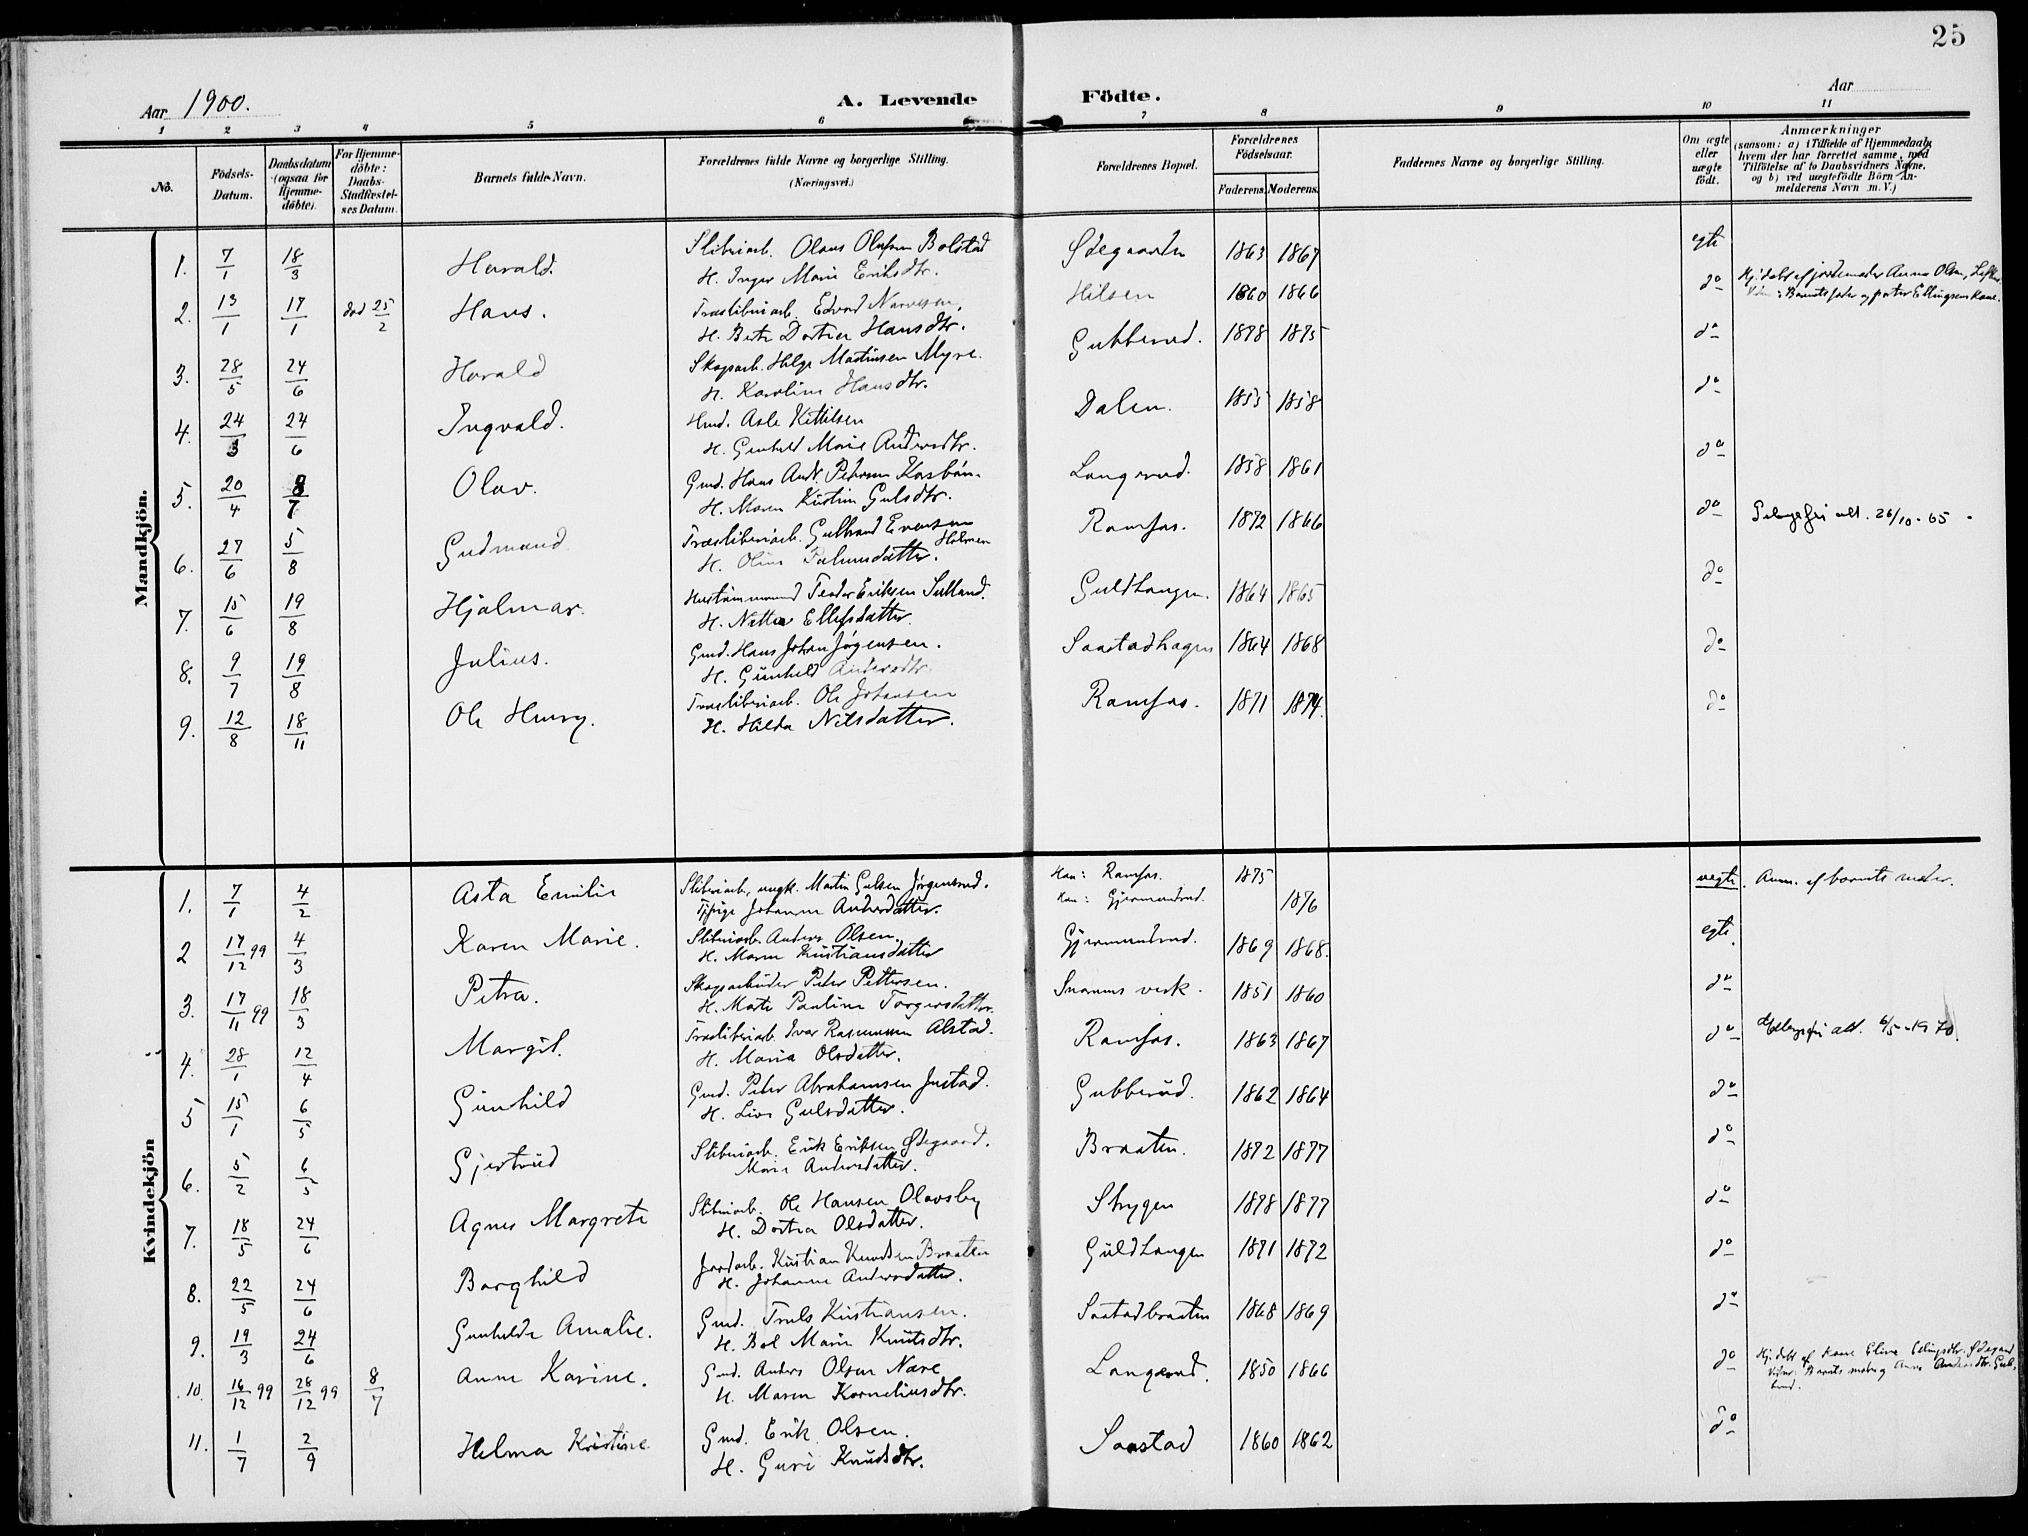 25
Aar 1900.
A. Levende Födte.
Aar
1 2 3 4 5 6 7 8 9 10 11
No.
Födsels-Datum.
Daabsdatum (ogsaa for Hjemme-döbte).
For Hjemme-döbte: Daabs-Stadfæstel-ses Datum.
Barnets fulde Navn.
Forældrenes fulde Navne og borgerlige Stilling.
(Næringsvei.)
Forældrenes Bopæl.
Forældrenes Födselsaar.
Faderens. Moderens.
Faddernes Navne og borgerlige Stilling.
Om ægte eller uægte födt.
Anmærkninger
(saasom: a) i Tilfælde af Hjemmedaab,
hvem der har forrettet samme, med
Tilföielse af to Daabsvidners Navne.
og b) ved uægtefödte Börn An-
melderens Navn m. V.)
Mandkjön.
1. 7/1 18/3 Harald. Sliberiarb. Olaus Olafsen Bolstad Ødegaarden 1863 1867 egte
H. Inger Marie Eriksdtr.
2. 13/1 17/1 død 25/2 Hans. Træsliberiarb. Edvard Narvesen, Hilsen 1860 1866 do Hj.døbt af jordemoder Anna Olsen,
H. Berte Dortea Hansdtr. Barnets fader og peter Ellingsens kone.
3. 28/5 24/6 Harald Skogarb. Helge Martinsen Myre. Gubberud. 1878 1875 do
H. Karoline Hansdtr.
4. 24/3 24/6 Ingvald. Hmd. Asle Kittilsen Dalen. 1855 1858 do
H. Gunhild Marie Andersdtr.
5. 20/4 8/7 Olav. Gmd. Hans Andr. Petersen Kasbön. Langerud. 1858 1861 do
H. Maren Kristine Gulsdtr.
6. 27/6 5/8 Gudmund Træsliberiarb. Gulbrand Evensen Holmen Ramfos. 1872 1866 do 26/10-65
H. Oline Palmesdatter.
7. 15/6 19/8 Hjalmar. Hustømmermand Teodor Eriksen Sulland. Guldhaugen. 1864 1865 do
H. Nettea Ellefsdatter.
8. 9/7 19/8 Julius. Gmd. Hans Johan Jørgensen. Saastadhagen 1864 1868 do
H. Gunhild Andersdtr.
9. 12/8 18/11 Ole Henry. Træsliberiarb. Ole Johansen Ramfos. 1871 1874. do
H. Hilda Nilsdatter.
Kvindekjön
1. 7/1 4/2 Asta Emilie Sliberiarb., ungk. Martin Gulsen Jørgensrud. Han: Ramfos. 1875 uegte. Anm. af barnets moder.
Pige Johanne Andersdatter. Hun: Gjermundrud. 1876
2 17/12 99 4/3 Karen Marie. Sliberiarb. Anders Olsen. Gjermundrud. 1869 1868. egte.
H. Maren Kristiansdatter
3. 17/11 99 18/3 Petra. Skogsarbeider Peter Pettersen. Snarums verk. 1851 1860 do
H. Marte Pauline Torgersdatter
4. 28/1 12/4 Margit. Træsliberiarb. Ivar Rasmussen Alstad. Ramfos. 1863 1867 do 6/5-1970.
H. Maria Olsdatter.
5 15/1 6/5 Gunhild Gmd. Peter Abrahamsen Justad. Gubberud. 1862 1864 do
H. Live Gulsdatter.
6. 5/2 6/5 Gjertrud Sliberiarb. Erik Eriksen Ødegaard. Braaten. 1872 1877 do
Marie Andersdatter.
7. 18/5 24/6 Agnes Margrete Sliberiarb. Ole Hansen Olavsby Strygen 1878 1877 do
H. Dortea Olsdatter.
8. 22/5 24/6 Borghild Jordarb. Kristian Knudsen Braaten Guldhaugen 1871 1872 do
H. Johanne Andersdatter.
9. 19/3 24/6 Gunhilde Amalie. Gmd. Truls Kristiansen. Saastadbraaten 1868 1869 do
H. Bol Marie Knutsdtr.
10. 16/12 99 28/12 99 8/7 Anne Karine. Gmd. Anders Olsen Nare Langerud. 1850 1866 do Hj. døbt af Kone Eline Ellingsdtr. Ødegaard
H. Maren Korneliusdtr. Vidner: Barnets moder og Anne Andersdtr.
11. 1/7 2/9 Helma Kristine Gmd. Erik Olsen. Saastad 1860 1862 do
H. Guri Knudsdtr.